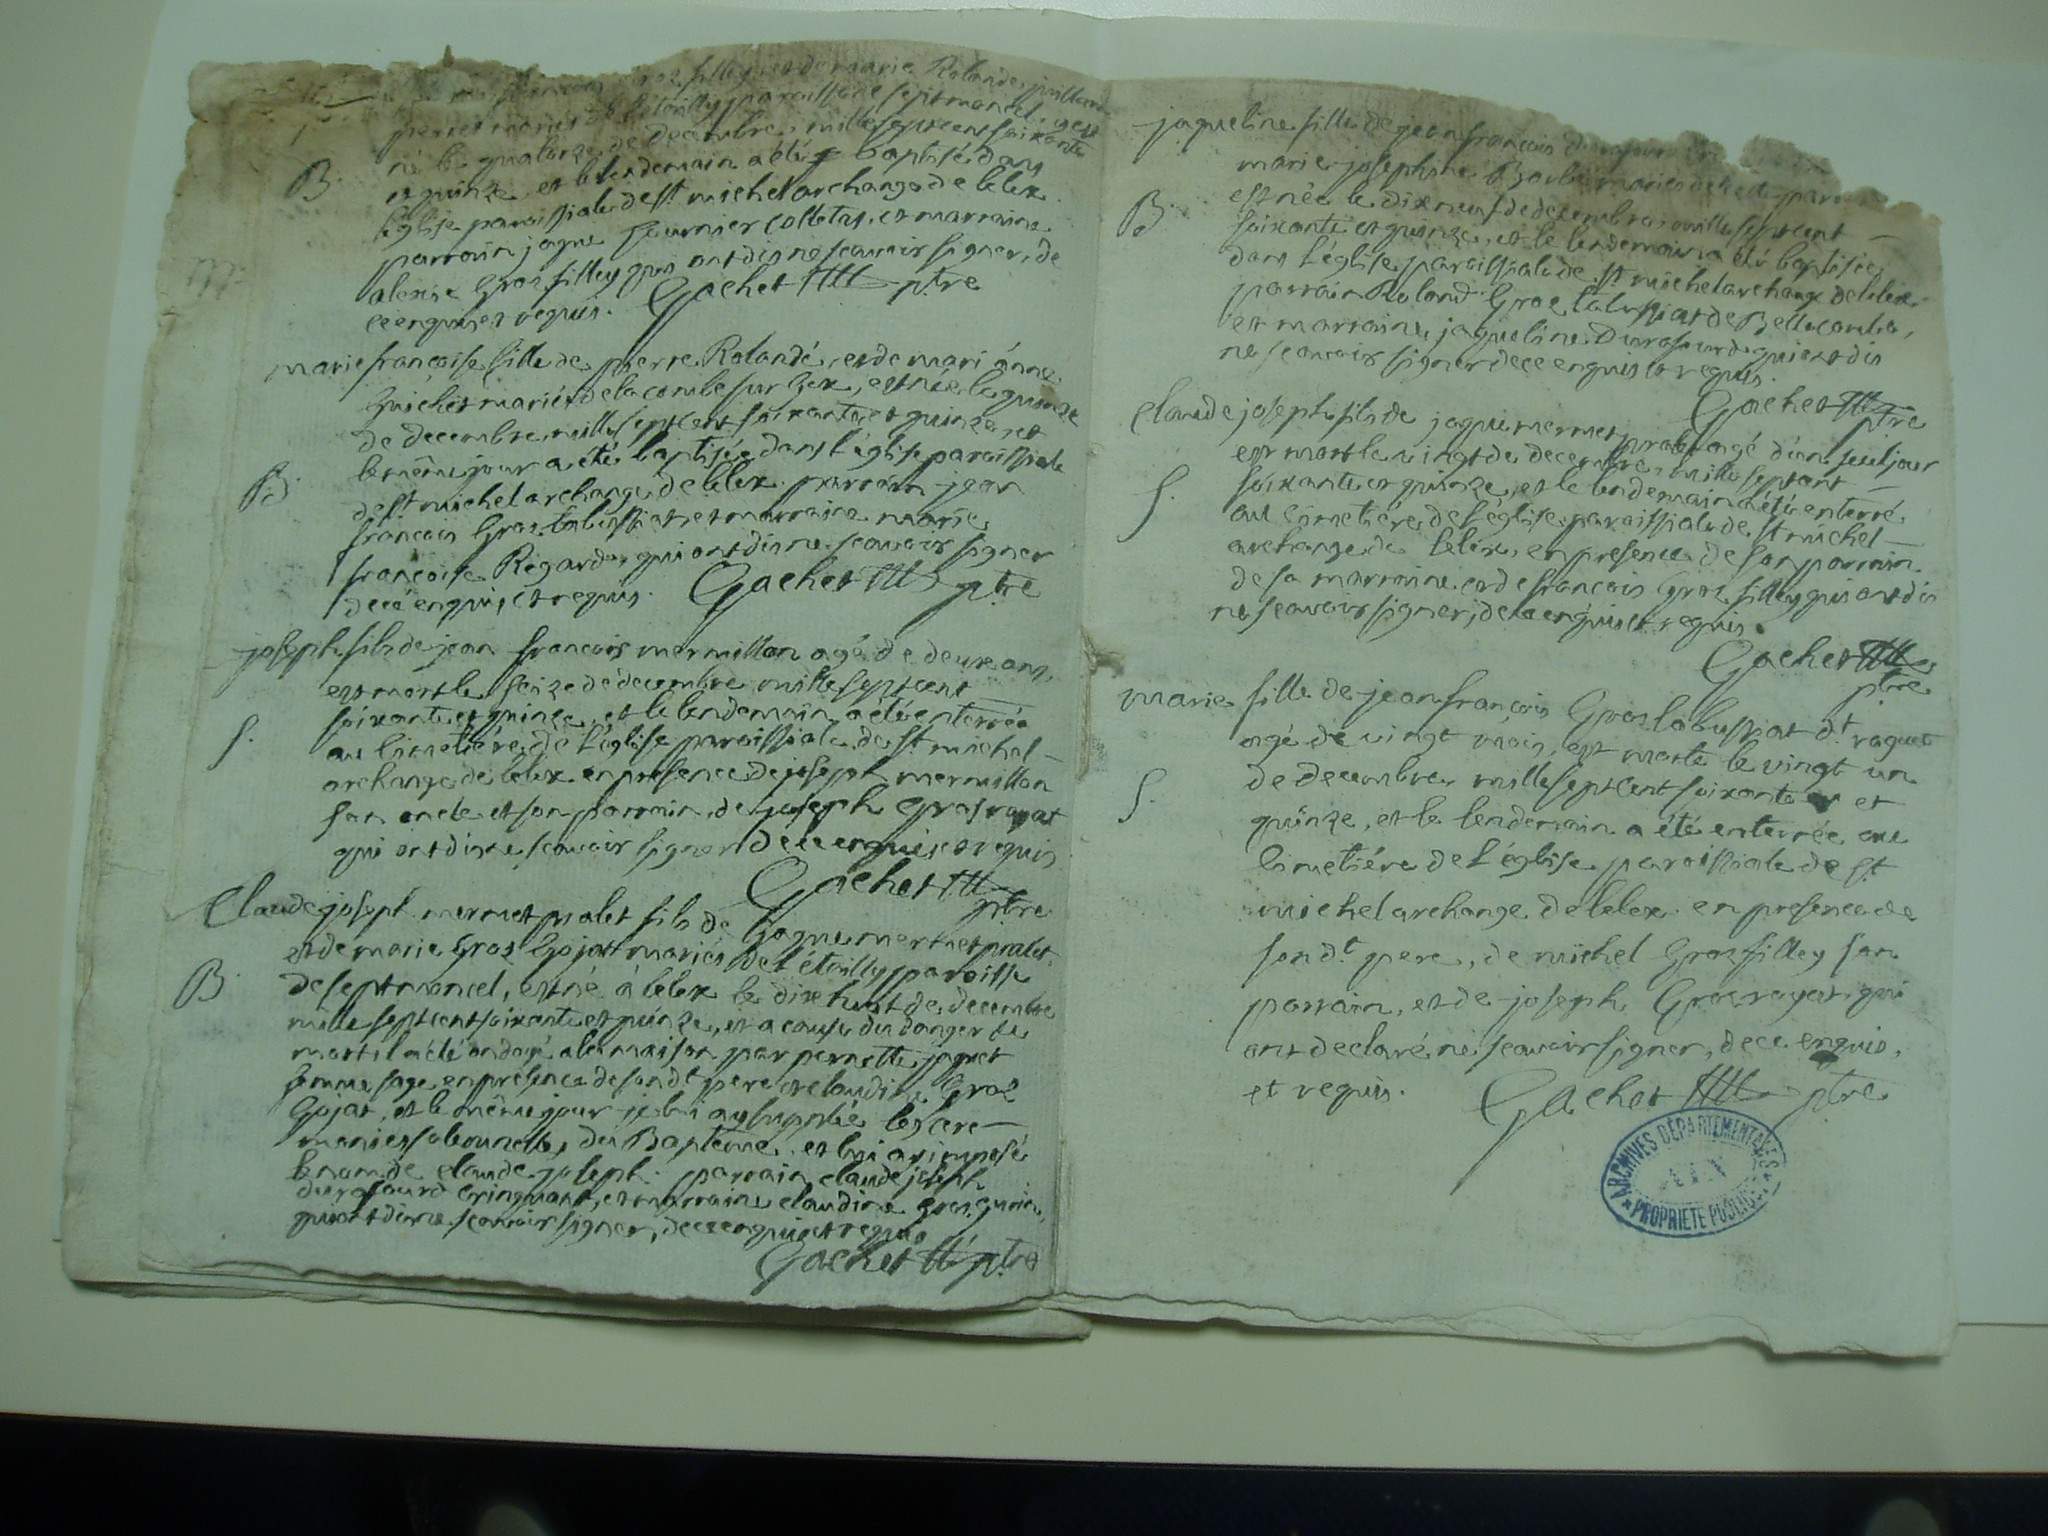 françois Gros filley et de marie Rolande juillard
perret mariés de l'étoilly paroisse de septmoncel, est
né le quatorze de decembre mille sept cent soixante
B.
et quinze et le lendemain a été baptisé dans
l'église paroissiale de st michel archange de lelex.
parrain jaque fournier colletas, et marraine
alexie Gros filley qui ont dis ne scavoir signer, de
ce enquis et requis. Gachet ptre
marie françoise fille de pierre Rolandé, et de mari anne
mariés de la combe sur lex, est née le quinze
de decembre mille sept cent soixante, et quinze, et
le même jour a été baptisée dans l'église paroissiale
B.
de st michel archange de lelex. parrain jean
francois Gros labussiat et marraine marie
françoise Regarde, qui ont dis ne scavoir signer
de ce enquis et requis. Gachet ptre
joseph fils de jean francois mermillon agé de deux ans,
est mort le seize de decembre mille sept cent
soixante et quinze, et le lendemain a été enterrée
S.
au cimetiére de l'église paroissiale de st michel
archange de lelex en presence de joseph mermillon
son oncle et son parrain, de joseph Gros rayat
qui ont dis ne scavoir signer de ce enquis et requis
Gachet ptre
Claude joseph mermet pralet fils de jaque mermet pralet
et de marie Gros Gojat mariés de l'étoilly paroisse
B.
de septmoncel, est né à lelex le dix huit de decembre
mille sept cent soixante et quinze, et a cause du danger de
mort il a été ondoyé a la maison par pernette jaquet
femme sage en presence de son dt pere et claudine Gros
Gojat, et le même jour je lui ay suppléé les cere-
monies du Baptême et lui ai imposé
le nom de claude joseph. parrain claude joseph
durafourd cringuant, et marraine claudine Gros
qui ont dis ne scavoir signer, de ce enquis et requis
Gachet ptre
jaqueline fille de jean françois durafour
marie josephine Barbe mariés de cette paroisse
est née le dix neuf de decembre mille sept cent
B.
soixante et quinze, et le lendemain a été baptisée
dans l'église paroissiale de st michel archange de lelex.
parrain Roland Gros labussiat de Bellecombe,
et marraine jaqueline Durafourd qui ont dis
ne scavoir signer de ce enquis et requis.
Gachet ptre
Claude joseph fils de jaque mermet pralet agé d'un seul jour
est mort le vingt de decembre mille sept cent
S.
soixante et quinze, et le lendemain a été enterré
au cimetiére de l'église paroissiale de st michel
archange de lelex, en presence de son parrain
de sa marraine et de francois Gros filley qui ont dis
ne scavoir signer, de ce enquis et requis.
Gachet
ptre
marie fille de jean françois Gros labussiat dt raguet
agé de vingt mois, est morte le vingt un
S.
de decembre mille sept cent soixante et
quinze, et le lendemain a été enterrée au
cimetiére de l'église paroissiale de st
michel archange de lelex en presence de
son dt pere, de michel Gros filley son
parrain, et de joseph Gros rayat qui
ont declaré ne scavoir signer, de ce enquis,
et requis. Gachet ptre
ARCHIVES DÉPARTEMENTALES
AIN
PROPRIETE PUBLIQUE